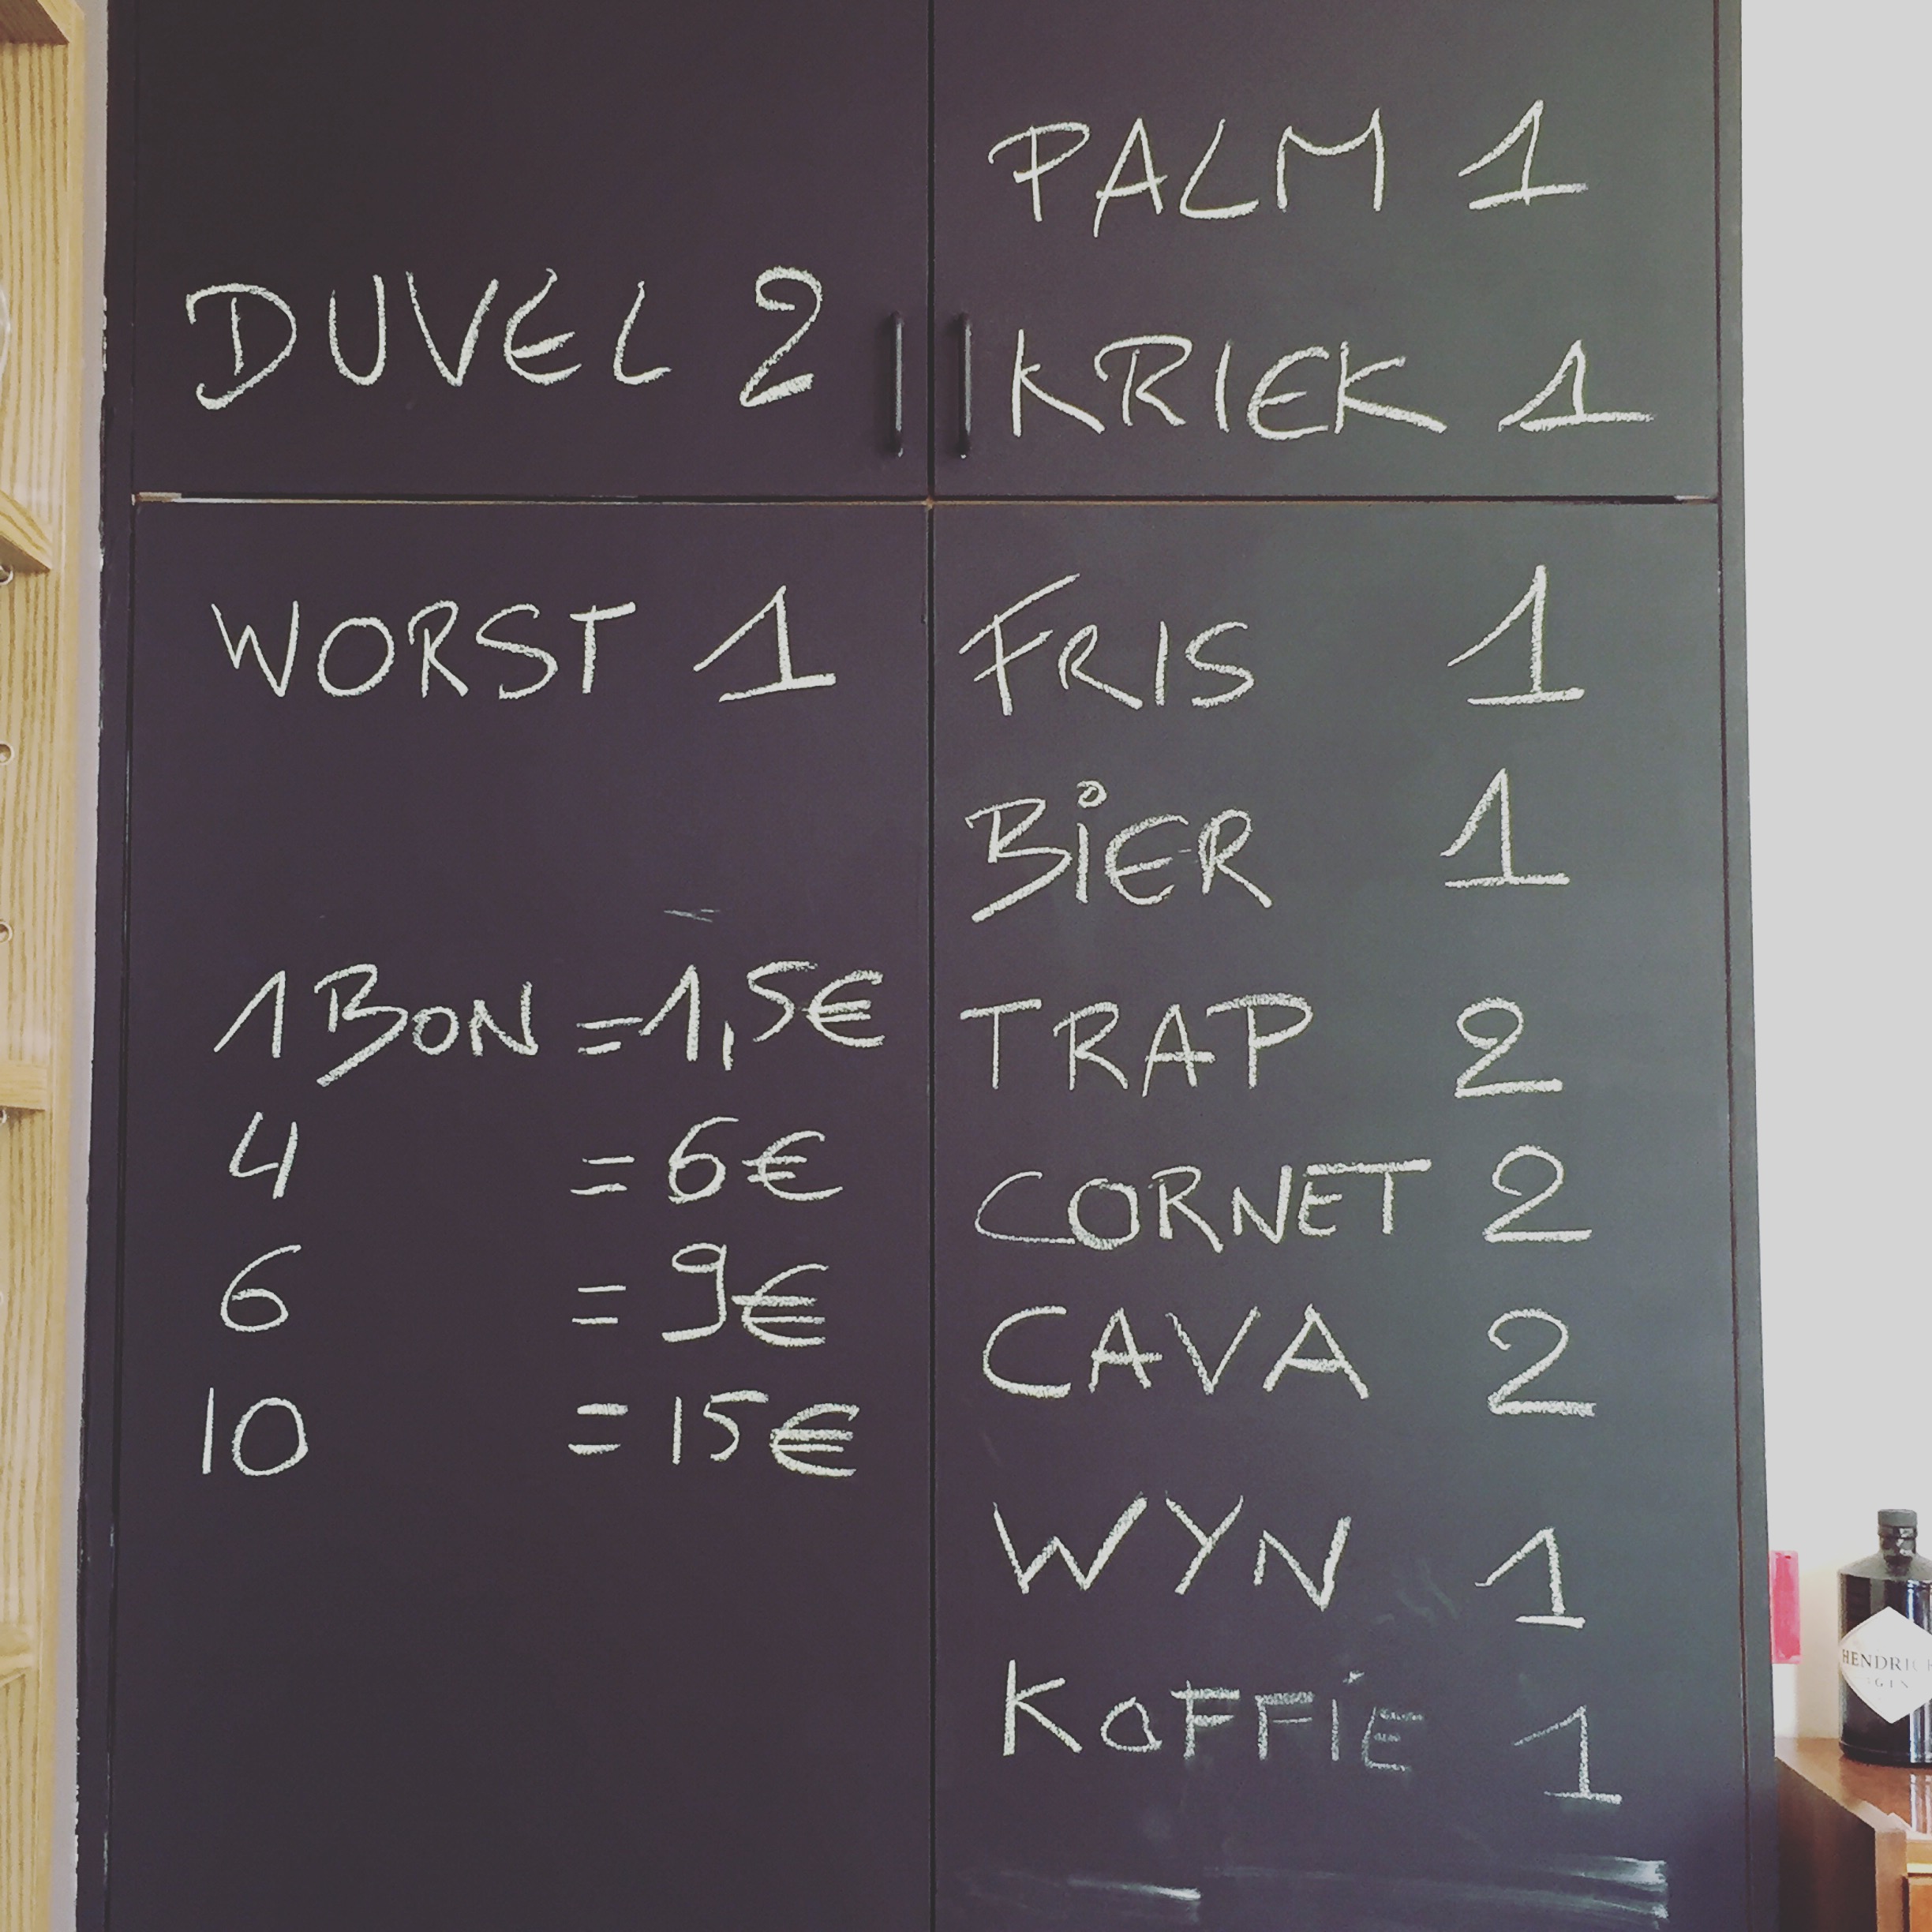 DUVEL 2
WORST 1
1 BON = 1,5€
4 = 6€
6 = 9€
10 = 15€
PALM 1
KRIEK 1
FRIS 1
BiER 1
TRAP 2
CORNET 2
CAVA 2
WYN 1
KOFFiE 1
GIN